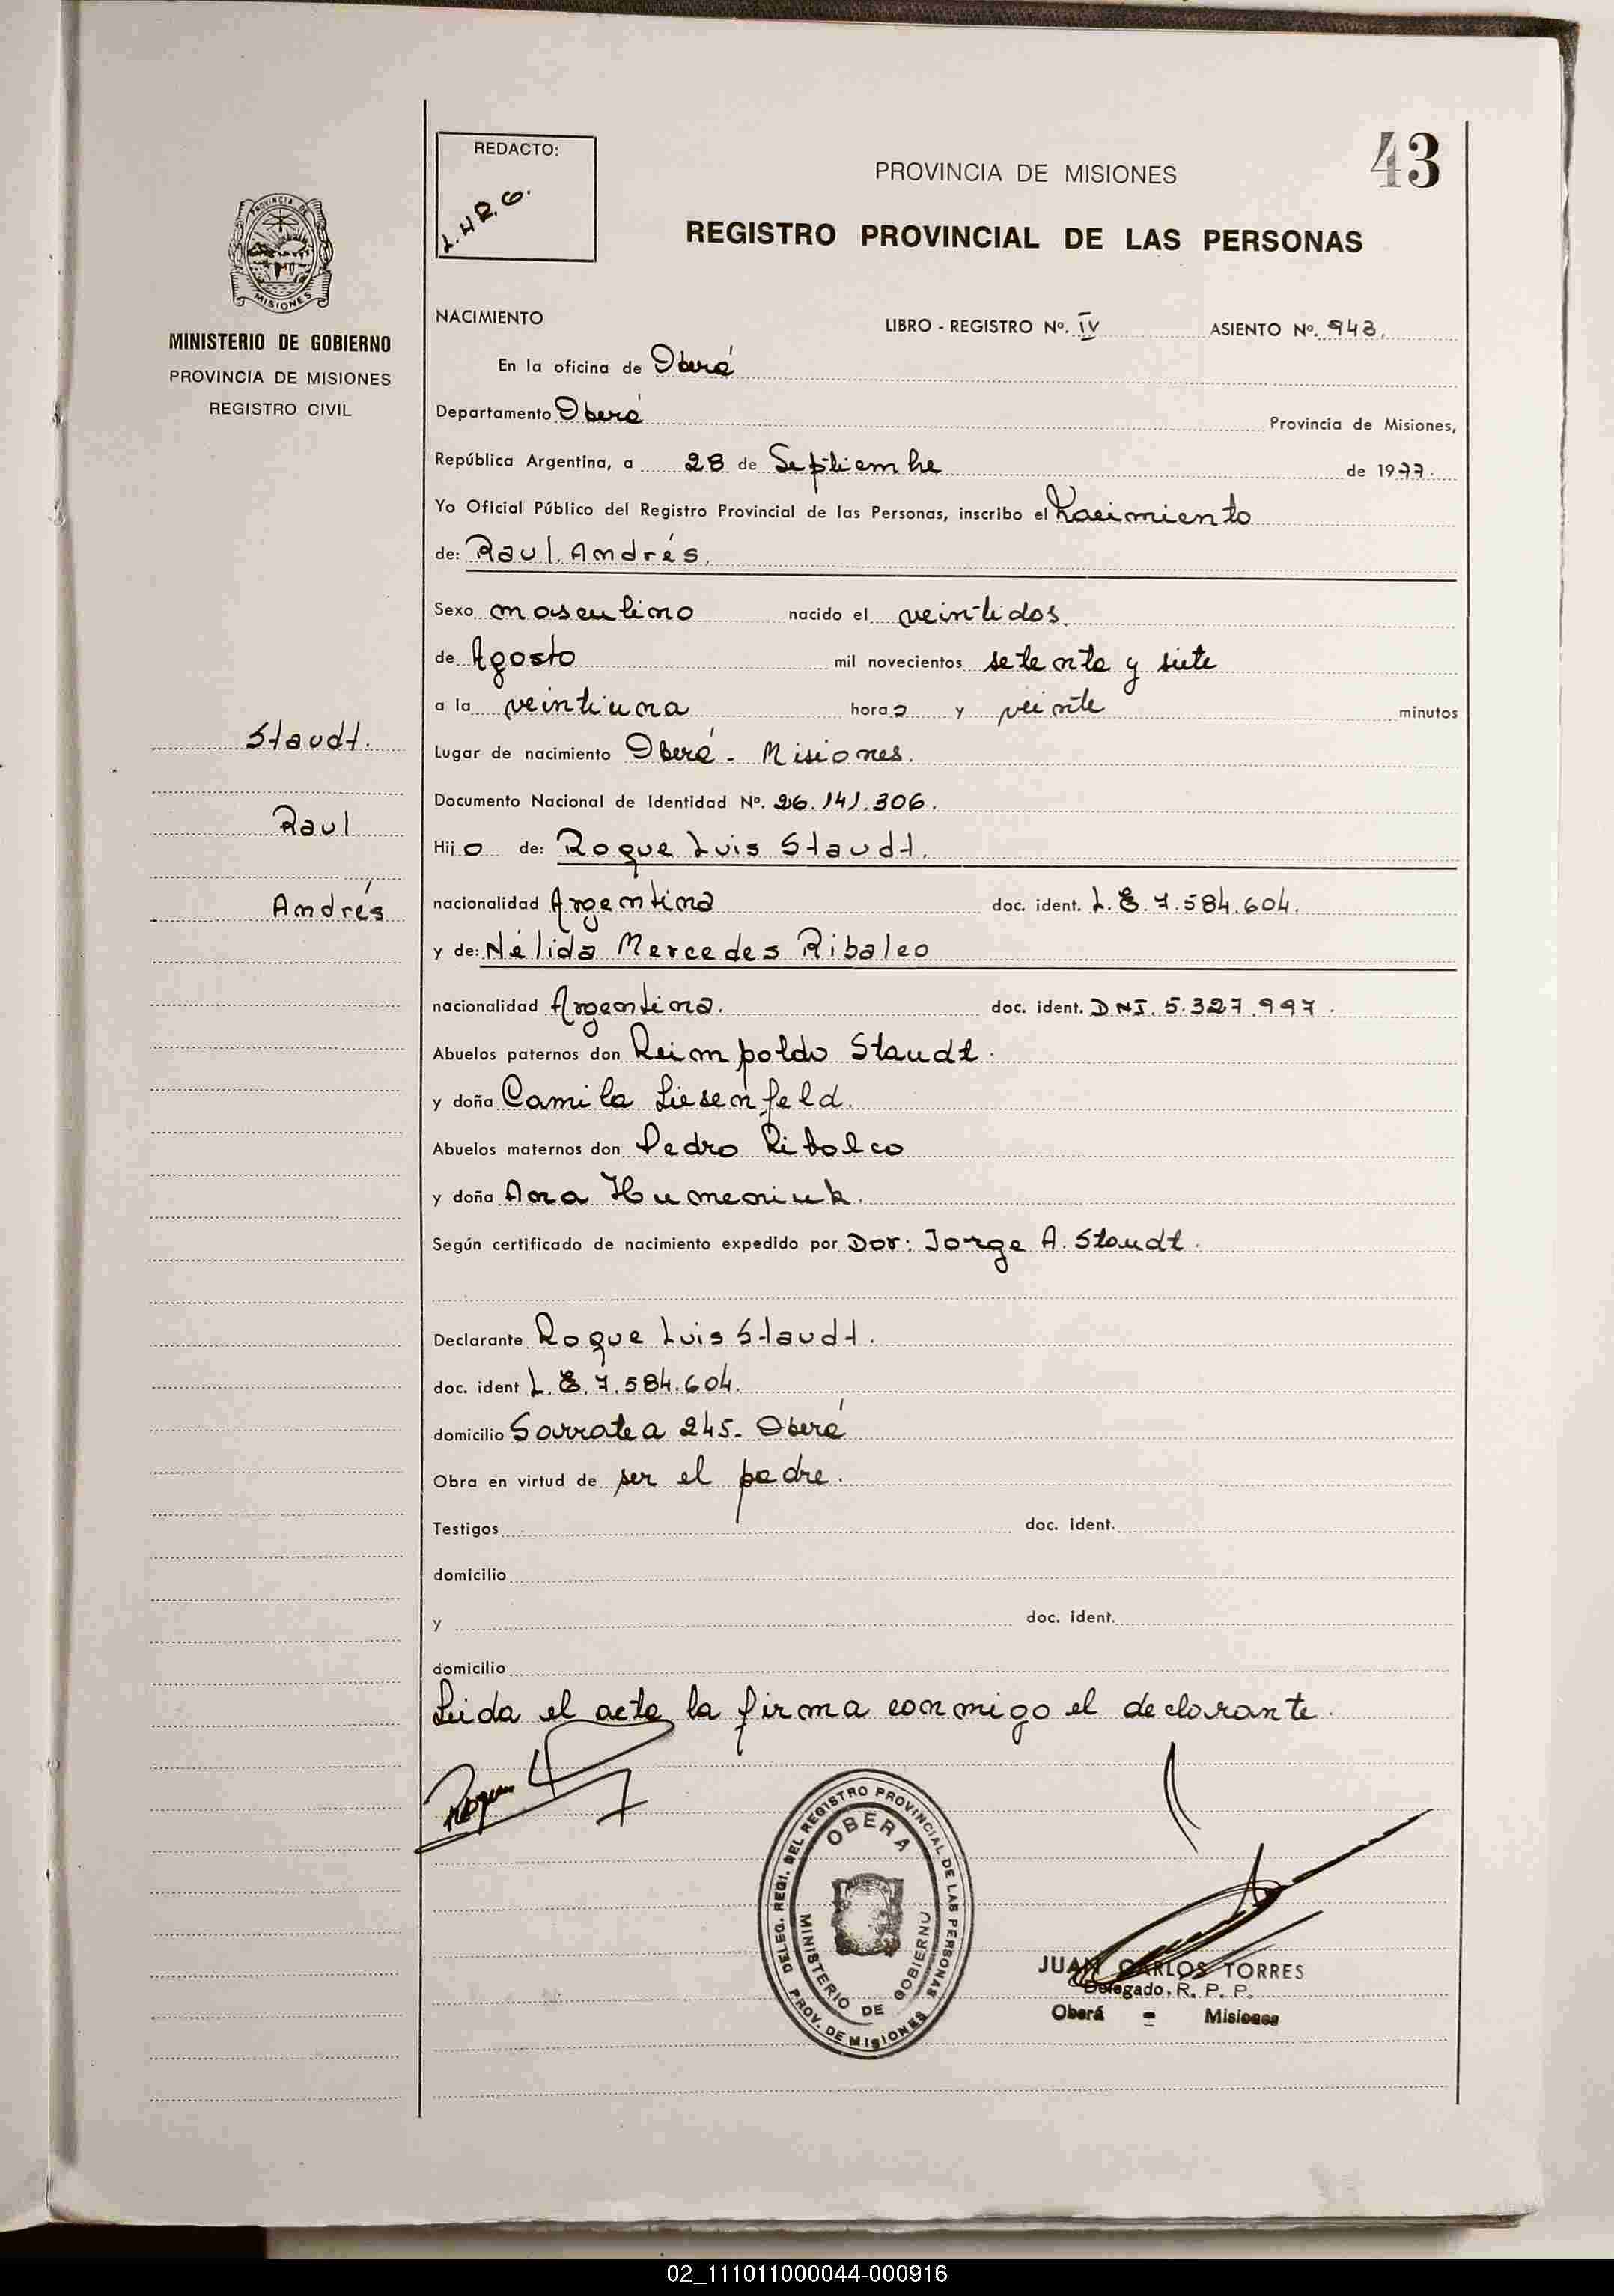 43
REDACTO:
L.H.R.G.
PROVINCIA DE MISIONES
REGISTRO PROVINCIAL DE LAS PERSONAS
PROVINCIA DE
MISIONES
MINISTERIO DE GOBIERNO
PROVINCIA DE MISIONES
REGISTRO CIVIL
NACIMIENTO LIBRO - REGISTRO Nº. IV ASIENTO Nº. 943.
En la oficina de Oberá
Departamento Oberá Provincia de Misiones,
República Argentina, a 28 de Septiembre de 1977.
Yo Oficial Público del Registro Provincial de las Personas, inscribo el Nacimiento
de: Raul Andrés.
Sexo masculino nacido el veintidos.
de Agosto mil novecientos setenta y siete
a la veintiuna horas y veinte minutos
Staudt.
Lugar de nacimiento Oberá - Misiones.
Documento Nacional de Identidad Nº. 26.141.306.
Raul
Hijo de: Roque Luis Staudt.
Andrés
nacionalidad Argentina doc. ident. L.E. 7.584.604.
y de: Nélida Mercedes Ribalco
nacionalidad Argentina. doc. ident. DNI. 5.327.997.
Abuelos paternos don Reimpoldo Staudt.
y doña Camila Liesenfeld.
Abuelos maternos don Pedro Ribalco
y doña Ana Humeniuk.
Según certificado de nacimiento expedido por Dor: Jorge A. Staudt.
Declarante Roque Luis Staudt.
doc. ident L.E. 7.584.604.
domicilio Sarratea 245. Oberá
Obra en virtud de ser el padre.
Testigos doc. ident.
domicilio
y doc. ident.
domicilio
Leida el acta la firma conmigo el declarante.
Roque
DELEG. REGI. DEL REGISTRO PROVINCIAL DE LAS PERSONAS
OBERA
MINISTERIO DE GOBIERNO
PROV. DE MISIONES
JUAN CARLOS TORRES
Delegado R. P. P.
Oberá - Misiones
02_111011000044-000916